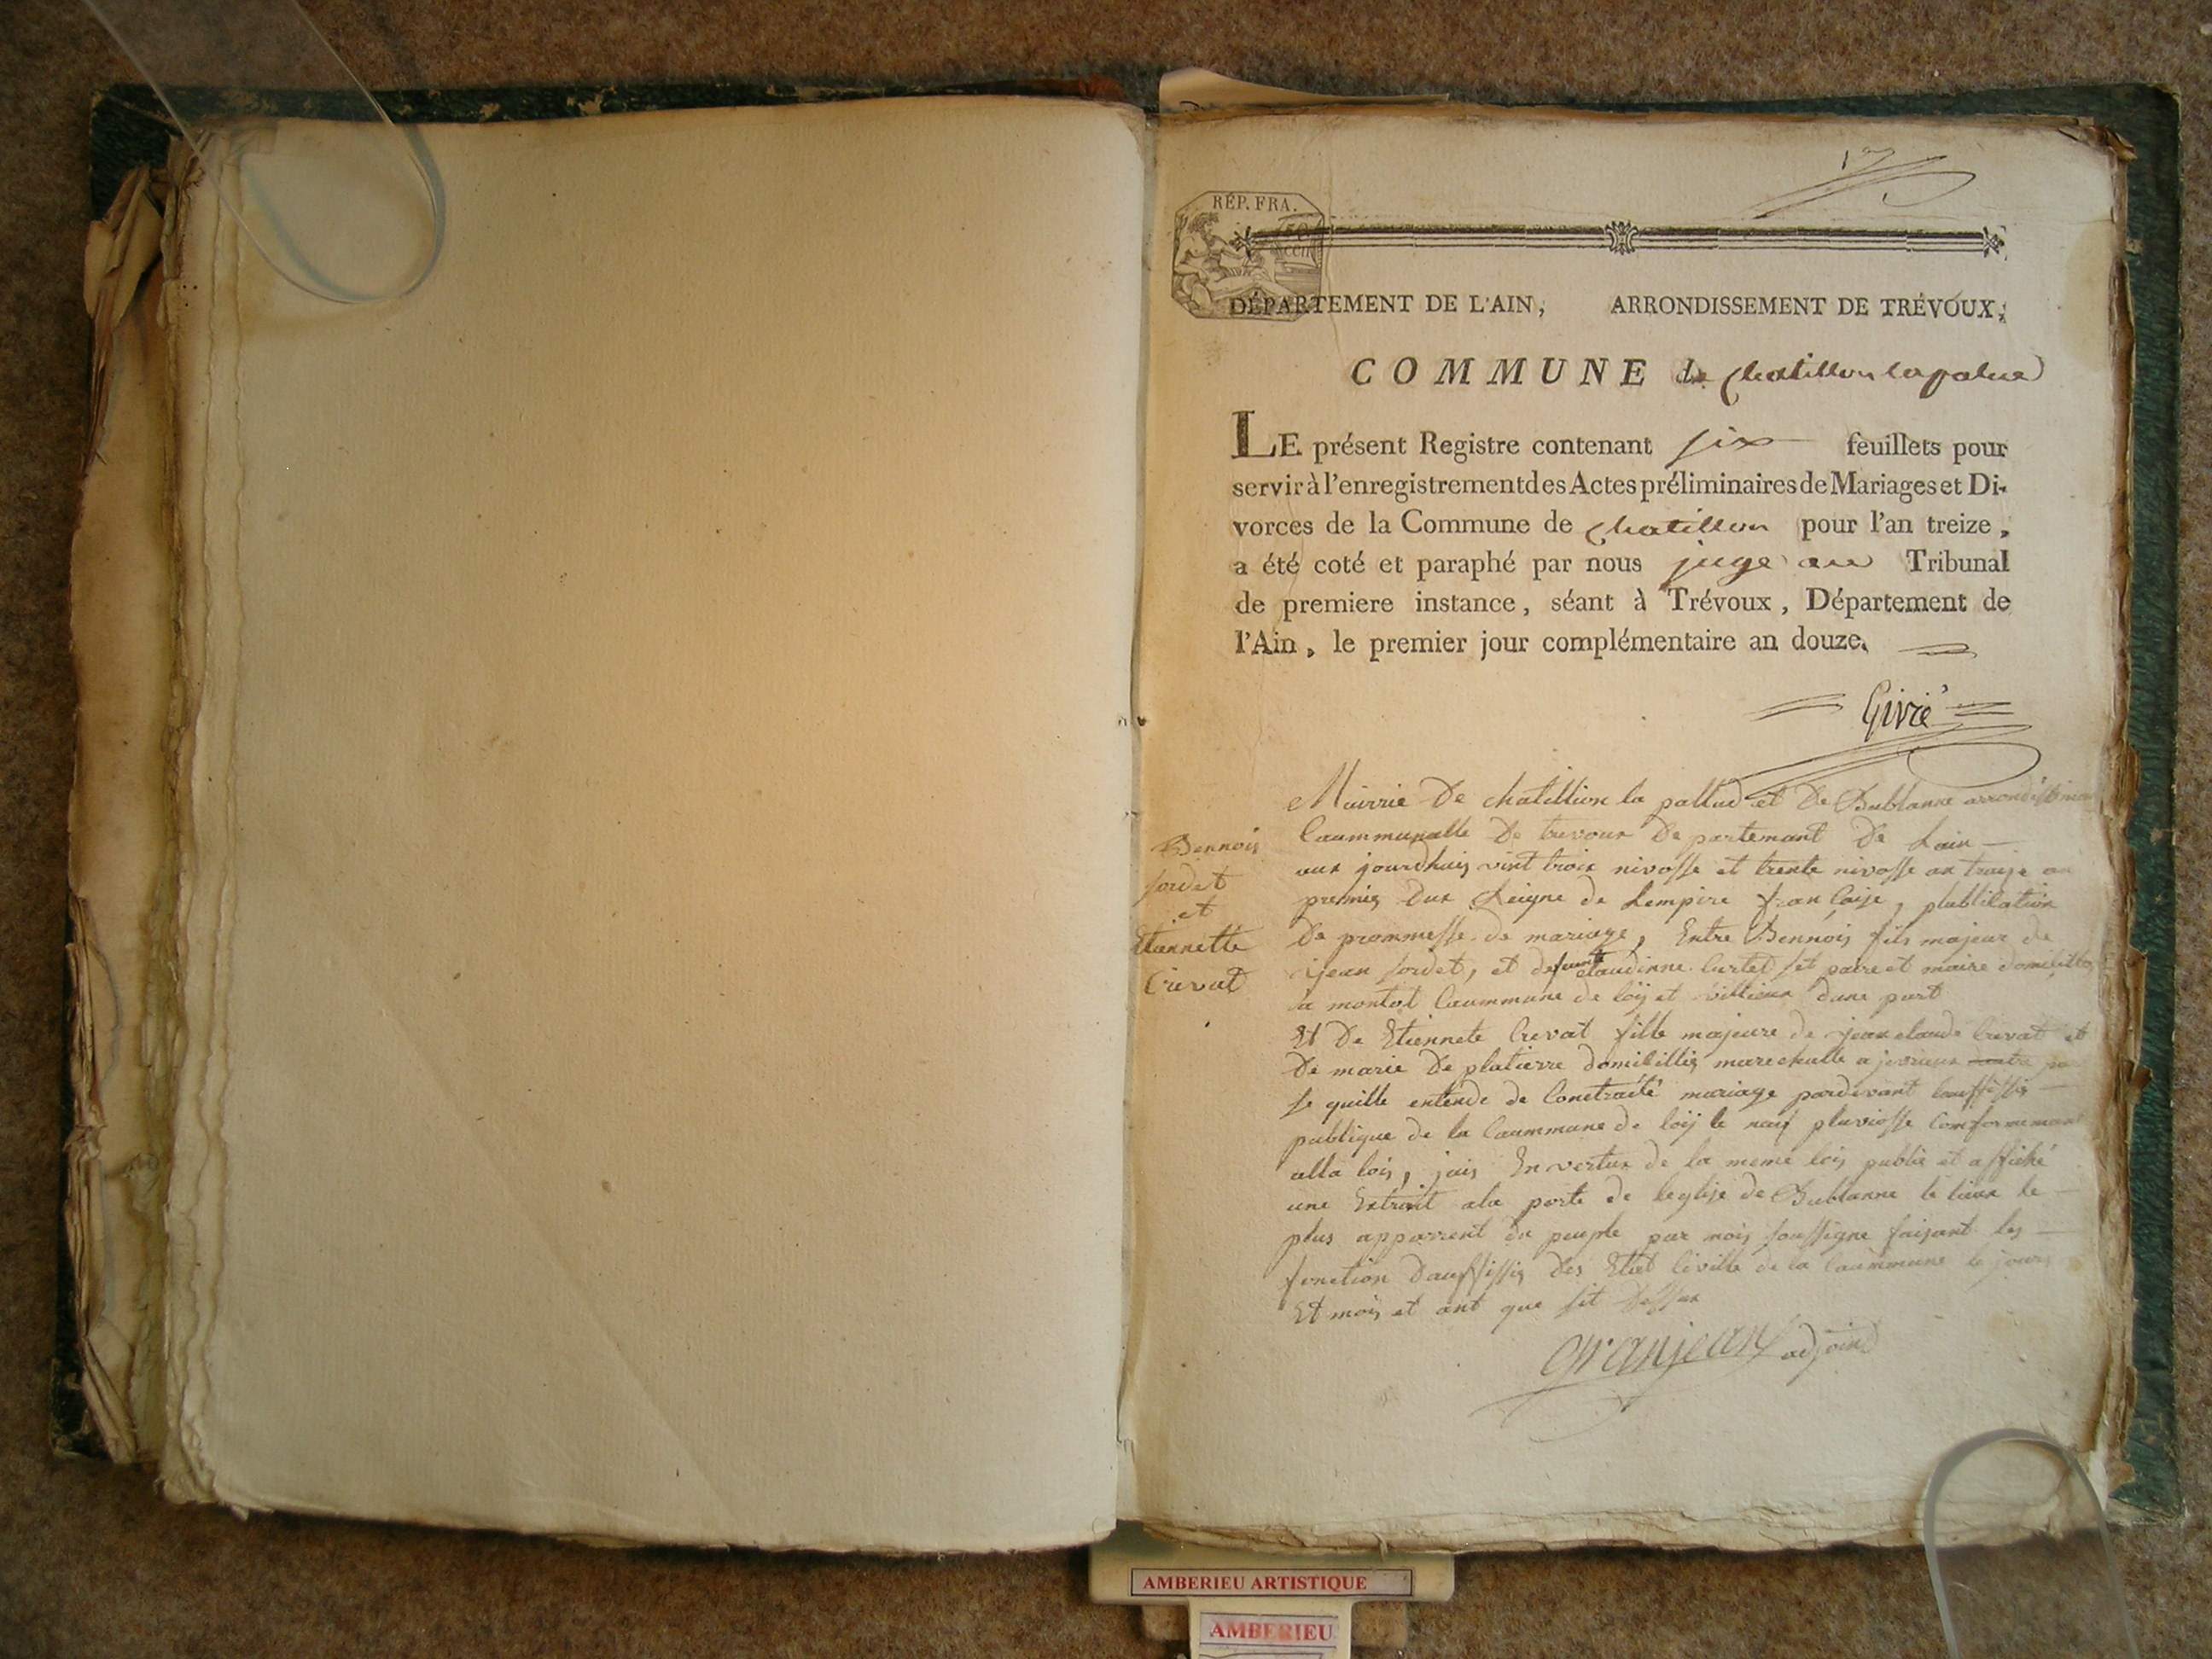 RÉP. FRA.
50
cen
DÉPARTEMENT DE L'AIN, ARRONDISSEMENT DE TRÉVOUX,
COMMUNE de chatillon lapalue
LE présent Registre contenant six feuillets pour
servir à l'enregistrement des Actes préliminaires de Mariages et Di-
vorces de la Commune de chatillon pour l'an treize,
a été coté et paraphé par nous juge au Tribunal
de premiere instance, séant à Trévoux, Département de
l'Ain, le premier jour complémentaire an douze.
Givré
Bennois
sordet
et
Etiannette
Crevat
Mairrie De chatillion la pallud et De Bublanne arrondissm
Caummunalle De trevoux De partemant De Lain
aux jourdhuis vint trois nivosse et trente nivosse an traize an
premis Dux Reigne de Lempire francaise, publication
De prommesse de mariage, Entre Bennois fils majeur de
jean sordet, et defunte claudinne Curtet set paire et maire domicillies
a montot Caummune de loÿ et villieux dune part
Et De Etiennete Crevat fille majeure de jean claude Crevat et
De marie De platierre domicillis marechalle a jevrieux
se quille entende de Contraité mariage pardevant lauffissis
publique de la Caummune de loÿ le nauf pluviosse Conformemant
alla lois, jais En vertux de la meme lois publié et affiché
une Extrait ala porte de leglise de Bublanne le lieux le
plus apparrent du peuple par mois soussigne faisant les
fonction Dauffissis Des Etat Civille de la Caummune le jours
Et mois et ant que sit dessux
granjean adjoind
AMBERIEU ARTISTIQUE
AMBERIEU